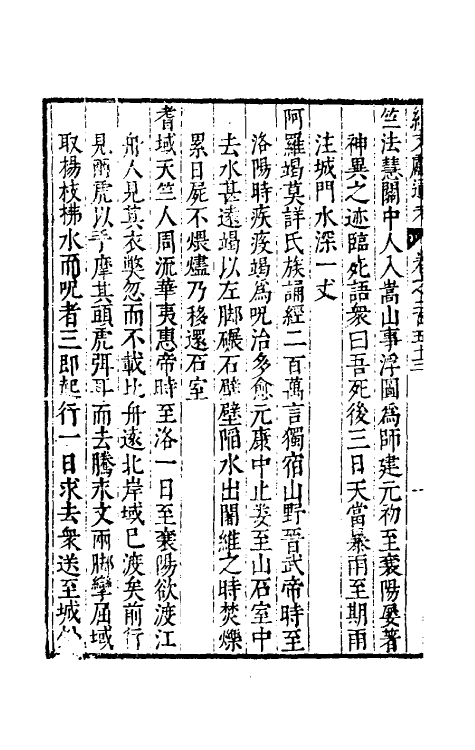 續文獻通考 卷之二百五十三
竺法慧關中人入嵩山事浮圖爲師建元初至襄陽屢著
神異之迹臨死語衆曰吾死後三日天當暴雨至期雨
注城門水深一丈
阿羅竭莫詳氏族誦經二百萬言獨宿山野晉武帝時至
洛陽時疾疫竭爲呪治多愈元康中止婁至山石室中
去水甚遠竭以左脚碾石壁壁陷水出闍維之時焚爍
累日屍不煨燼乃移還石室
耆域天竺人周流華夷惠帝時至洛一日至襄陽欲渡江
舟人見其衣獘忽而不載比舟逺北岸域已渡矣前行
見兩虎以手摩其頭虎弭耳而去騰末文兩脚攣屈域
取楊枝拂水而呪者三即起行一日求去衆送至城